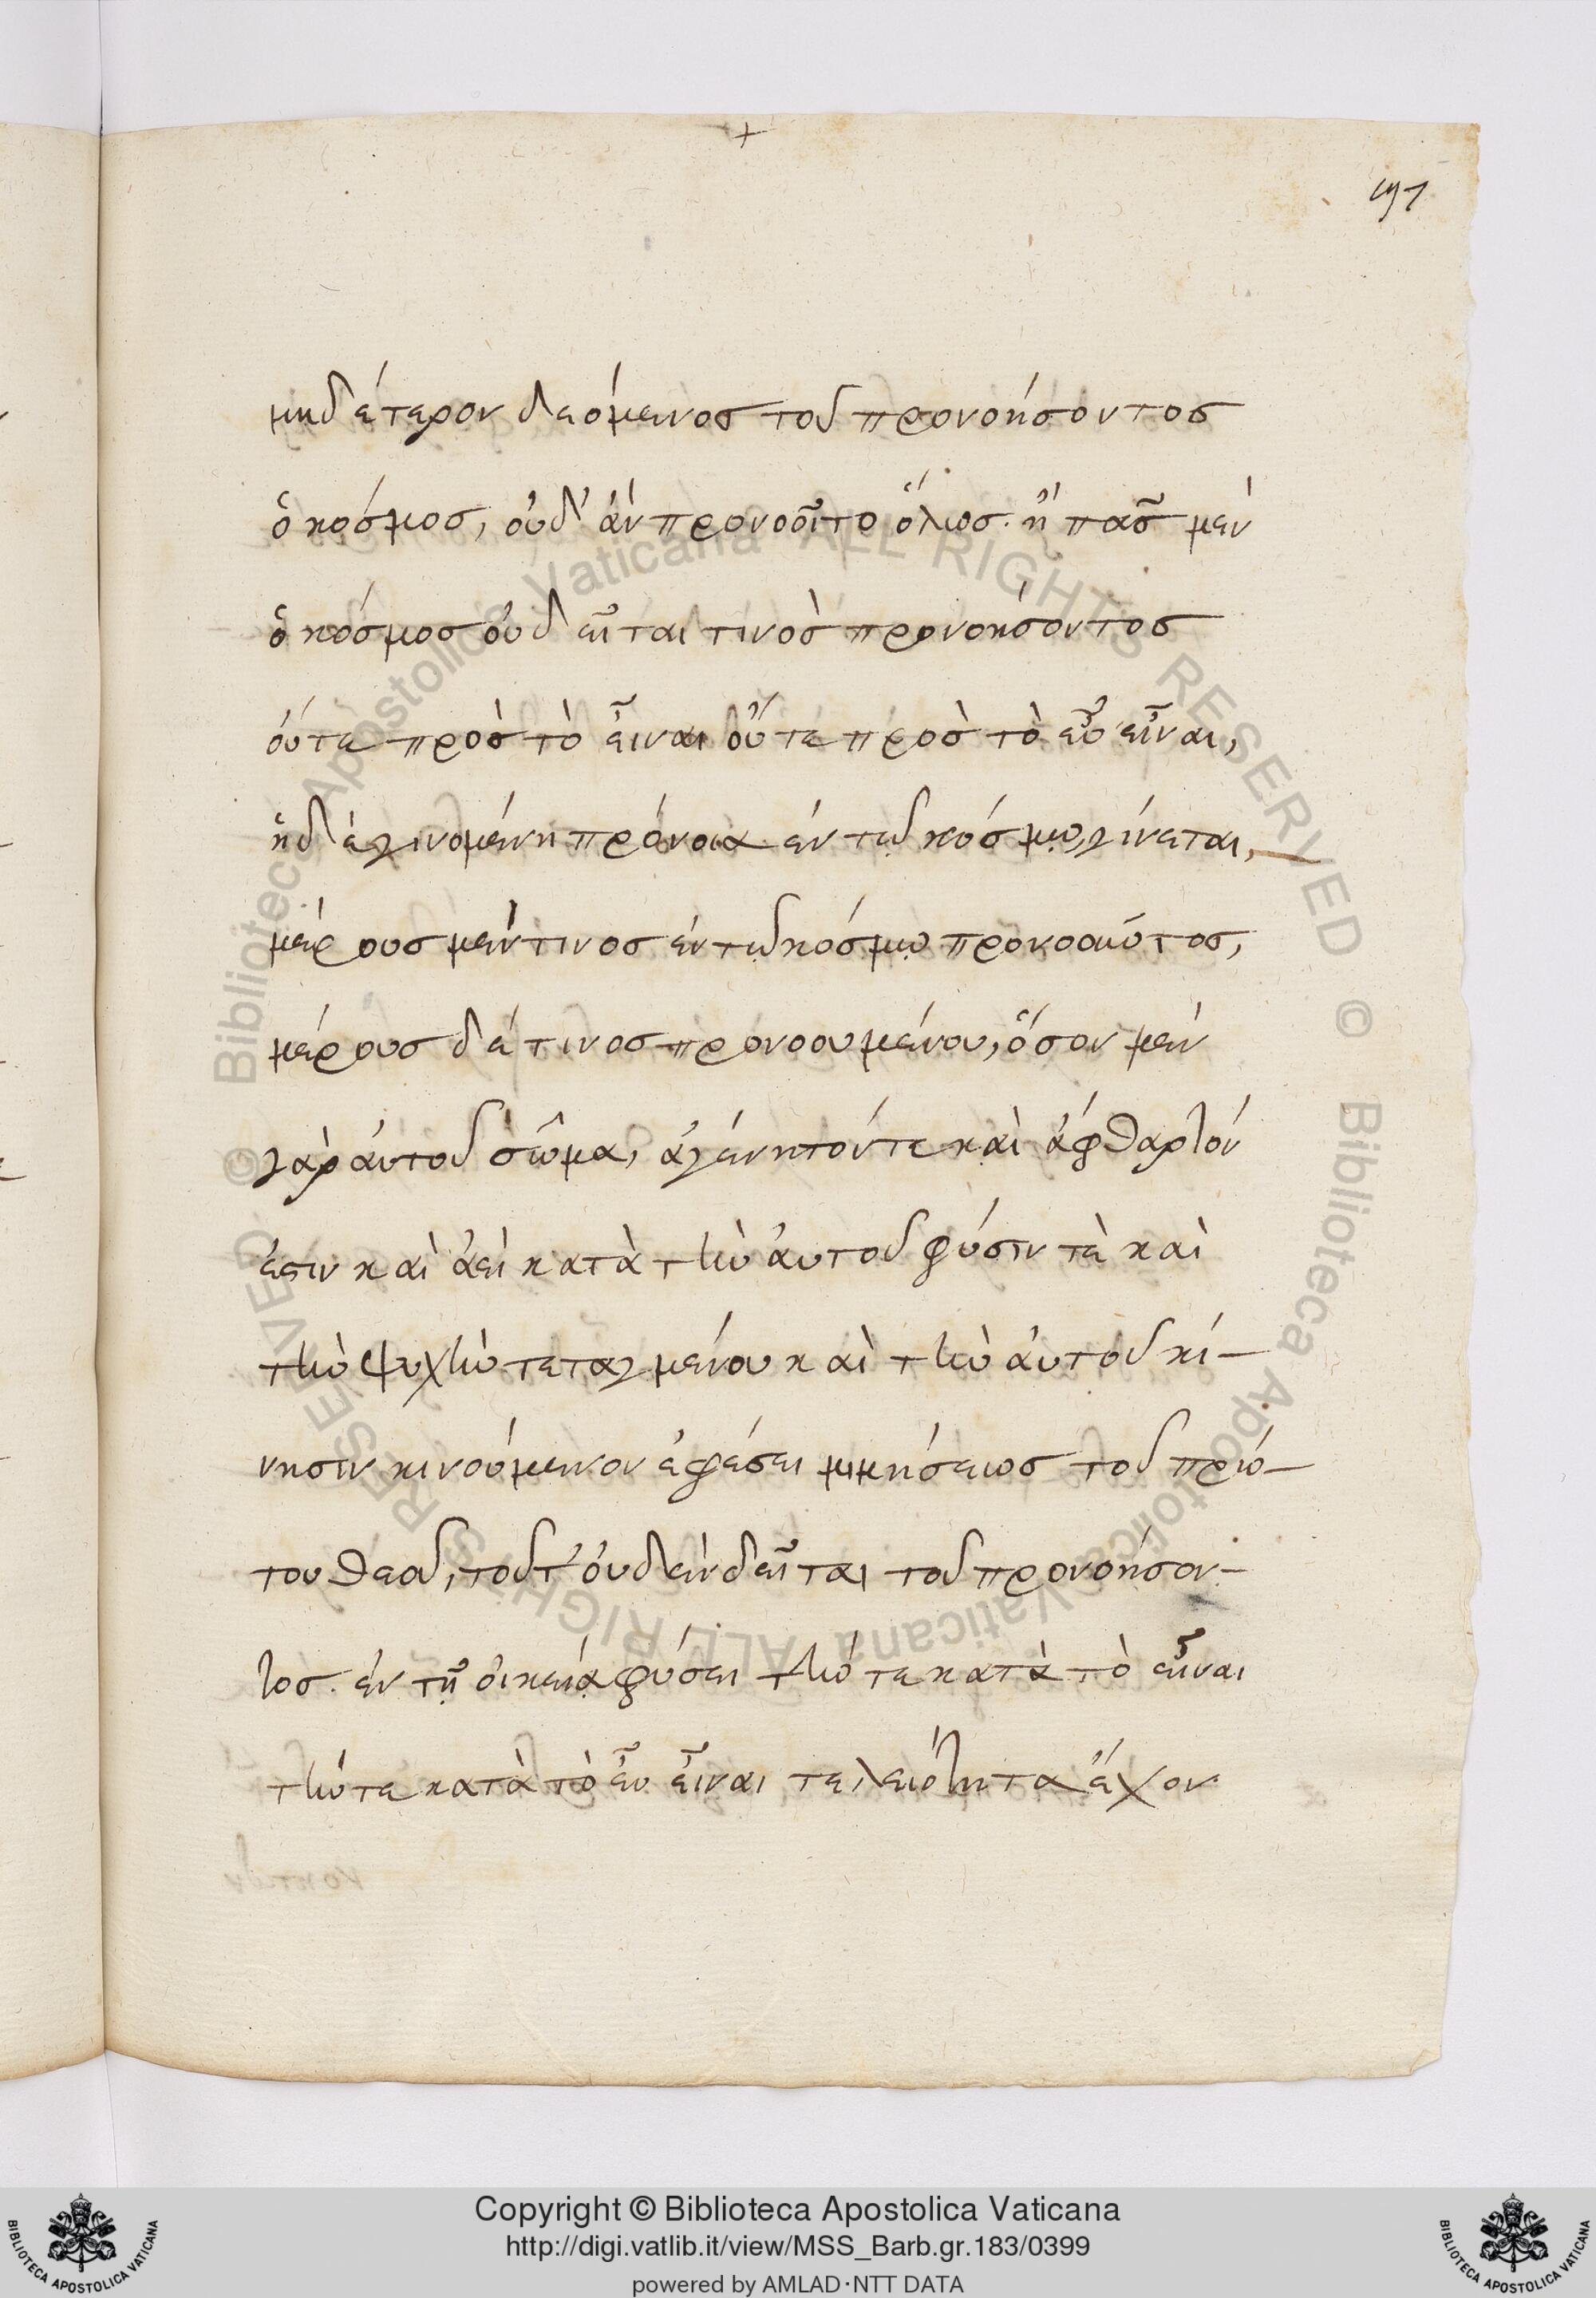 +
197
μηδ ἕτερον δεόμενος τοῦ προνοήσοντος
ὁ κόσμος, οὐδ' ἂν προνοοῖτο ὅλως. ἢ πᾶς μὲν
ὁ κόσμος οὐ δεῖται τινὸς προνοήσοντος
οὔτε πρὸς τὸ εἶναι οὔτε πρὸς τὸ εὖ εἶναι,
ἡ δὲ γινομένη πρόνοια ἐν τῷ κόσμῳ γίνεται,
μέρους μέν τινος ἐν τῷ κόσμῳ προνοοῦντος,
μέρους δέ τινος προνοουμένου, ὅσον μὲν
γὰρ αὐτοῦ σῶμα, ἀγένητόν τε καὶ ἄφθαρτόν
ἐστιν καὶ ἀεὶ κατὰ τὴν αὐτοῦ φύσιν τὲ καὶ
τὴν ψυχὴν τεταγμένου καὶ τὴν αὐτοῦ κί-
νησιν κινούμενον ἐφέσει μιμήσεως τοῦ πρώ-
του θεοῦ, τοῦτ' οὐδὲν δεῖται τοῦ προνοήσον-
τος. ἐν τῇ οἰκείᾳ φύσει τήν τε κατὰ τὸ εἶναι
τήν τε κατὰ τὸ εὖ εἶναι τελειότητα ἔχον
Copyright © Biblioteca Apostolica Vaticana
http://digi.vatlib.it/view/MSS_Barb.gr.183/0399
powered by AMLAD·NTT DATA
BIBLIOTECA APOSTOLICA VATICANA
BIBLIOTECA APOSTOLICA VATICANA
© Biblioteca Apostolica Vaticana ALL RIGHTS RESERVED
© Biblioteca Apostolica Vaticana ALL RIGHTS RESERVED